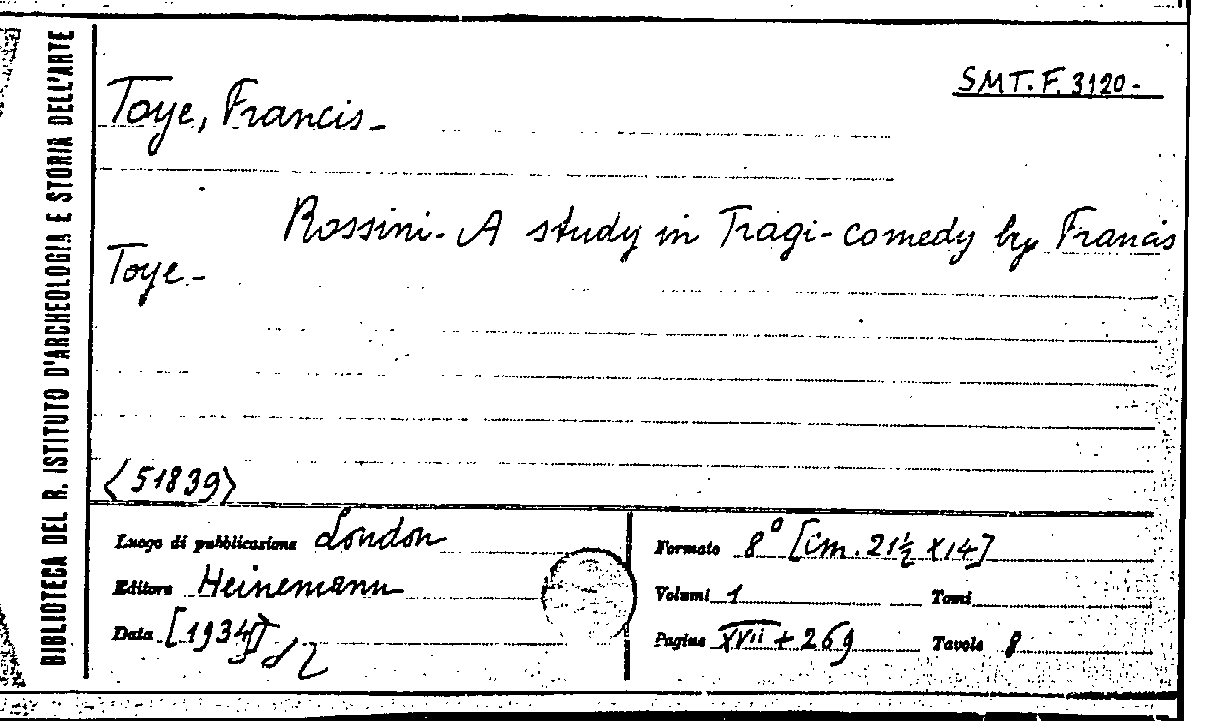 BIBLIOTECA DEL R. ISTITUTO D'ARCHEOLOGIA E STORIA DELL'ARTE
SMT. F. 3120-
Toye, Francis-
Rossini- A study in Tragi-comedy by Francis
Toye-
<51839>
Luogo di pubblicazione London
Editore Heinemann
Data [1934]
Formato 8° [Cm. 21½ x 14]
Volumi 1 Tomi
Pagine XVII + 269 Tavole 8